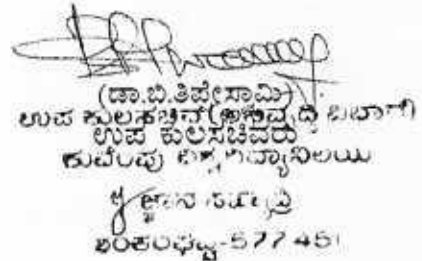 (ಡಾ.ಬಿ.ತಿಪ್ಪೇಸಾಮಿ)
ಉಪ ಕುಲಸಚಿವ (ಅಭಿವೃದ್ಧಿ ವಿಭಾಗ)
ಉಪ ಕುಲಸಚಿವರು
ಕುವೆಂಪು ವಿಶ್ವವಿದ್ಯಾನಿಲಯ
ಜ್ಞಾನ ಸಹ್ಯಾದ್ರಿ
ಶಂಕರಘಟ್ಟ-577 451